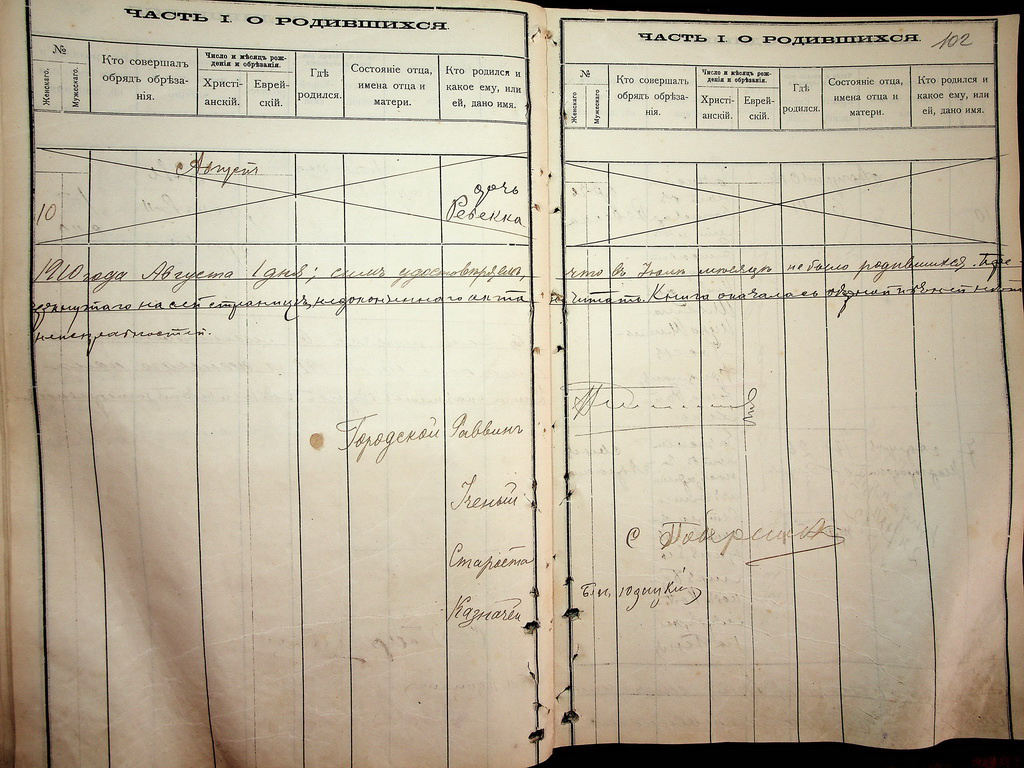 ЧАСТЬ I. О РОДИВШИХСЯ.
№
Женскаго.
Мужескаго.
Кто совершалъ обрядъ обрѣзанія.
Число и мѣсяцъ рожденія и обрѣзанія.
Христіанскій.
Еврейскій.
Гдѣ родился.
Состояніе отца, имена отца и матери.
Кто родился и какое ему, или ей, дано имя.
Августъ
10
дочь
Ревекка
1910 года Августа 1 дня; симъ удостовѣряемъ,
на сей страницѣ, недоконченнаго акта
Городской Раввинъ
Ученый
Староста
Казначей
ЧАСТЬ I. О РОДИВШИХСЯ.
102
№
Женскаго
Мужескаго
Кто совершалъ обрядъ обрѣзанія.
Число и мѣсяцъ рожденія и обрѣзанія.
Христіанскій.
Еврейскій.
Гдѣ родился.
Состояніе отца, имена отца и матери.
Кто родился и какое ему, или ей, дано имя.
что въ Іюлѣ мѣсяцѣ не было родившихся.
не считать. Книга оказалась